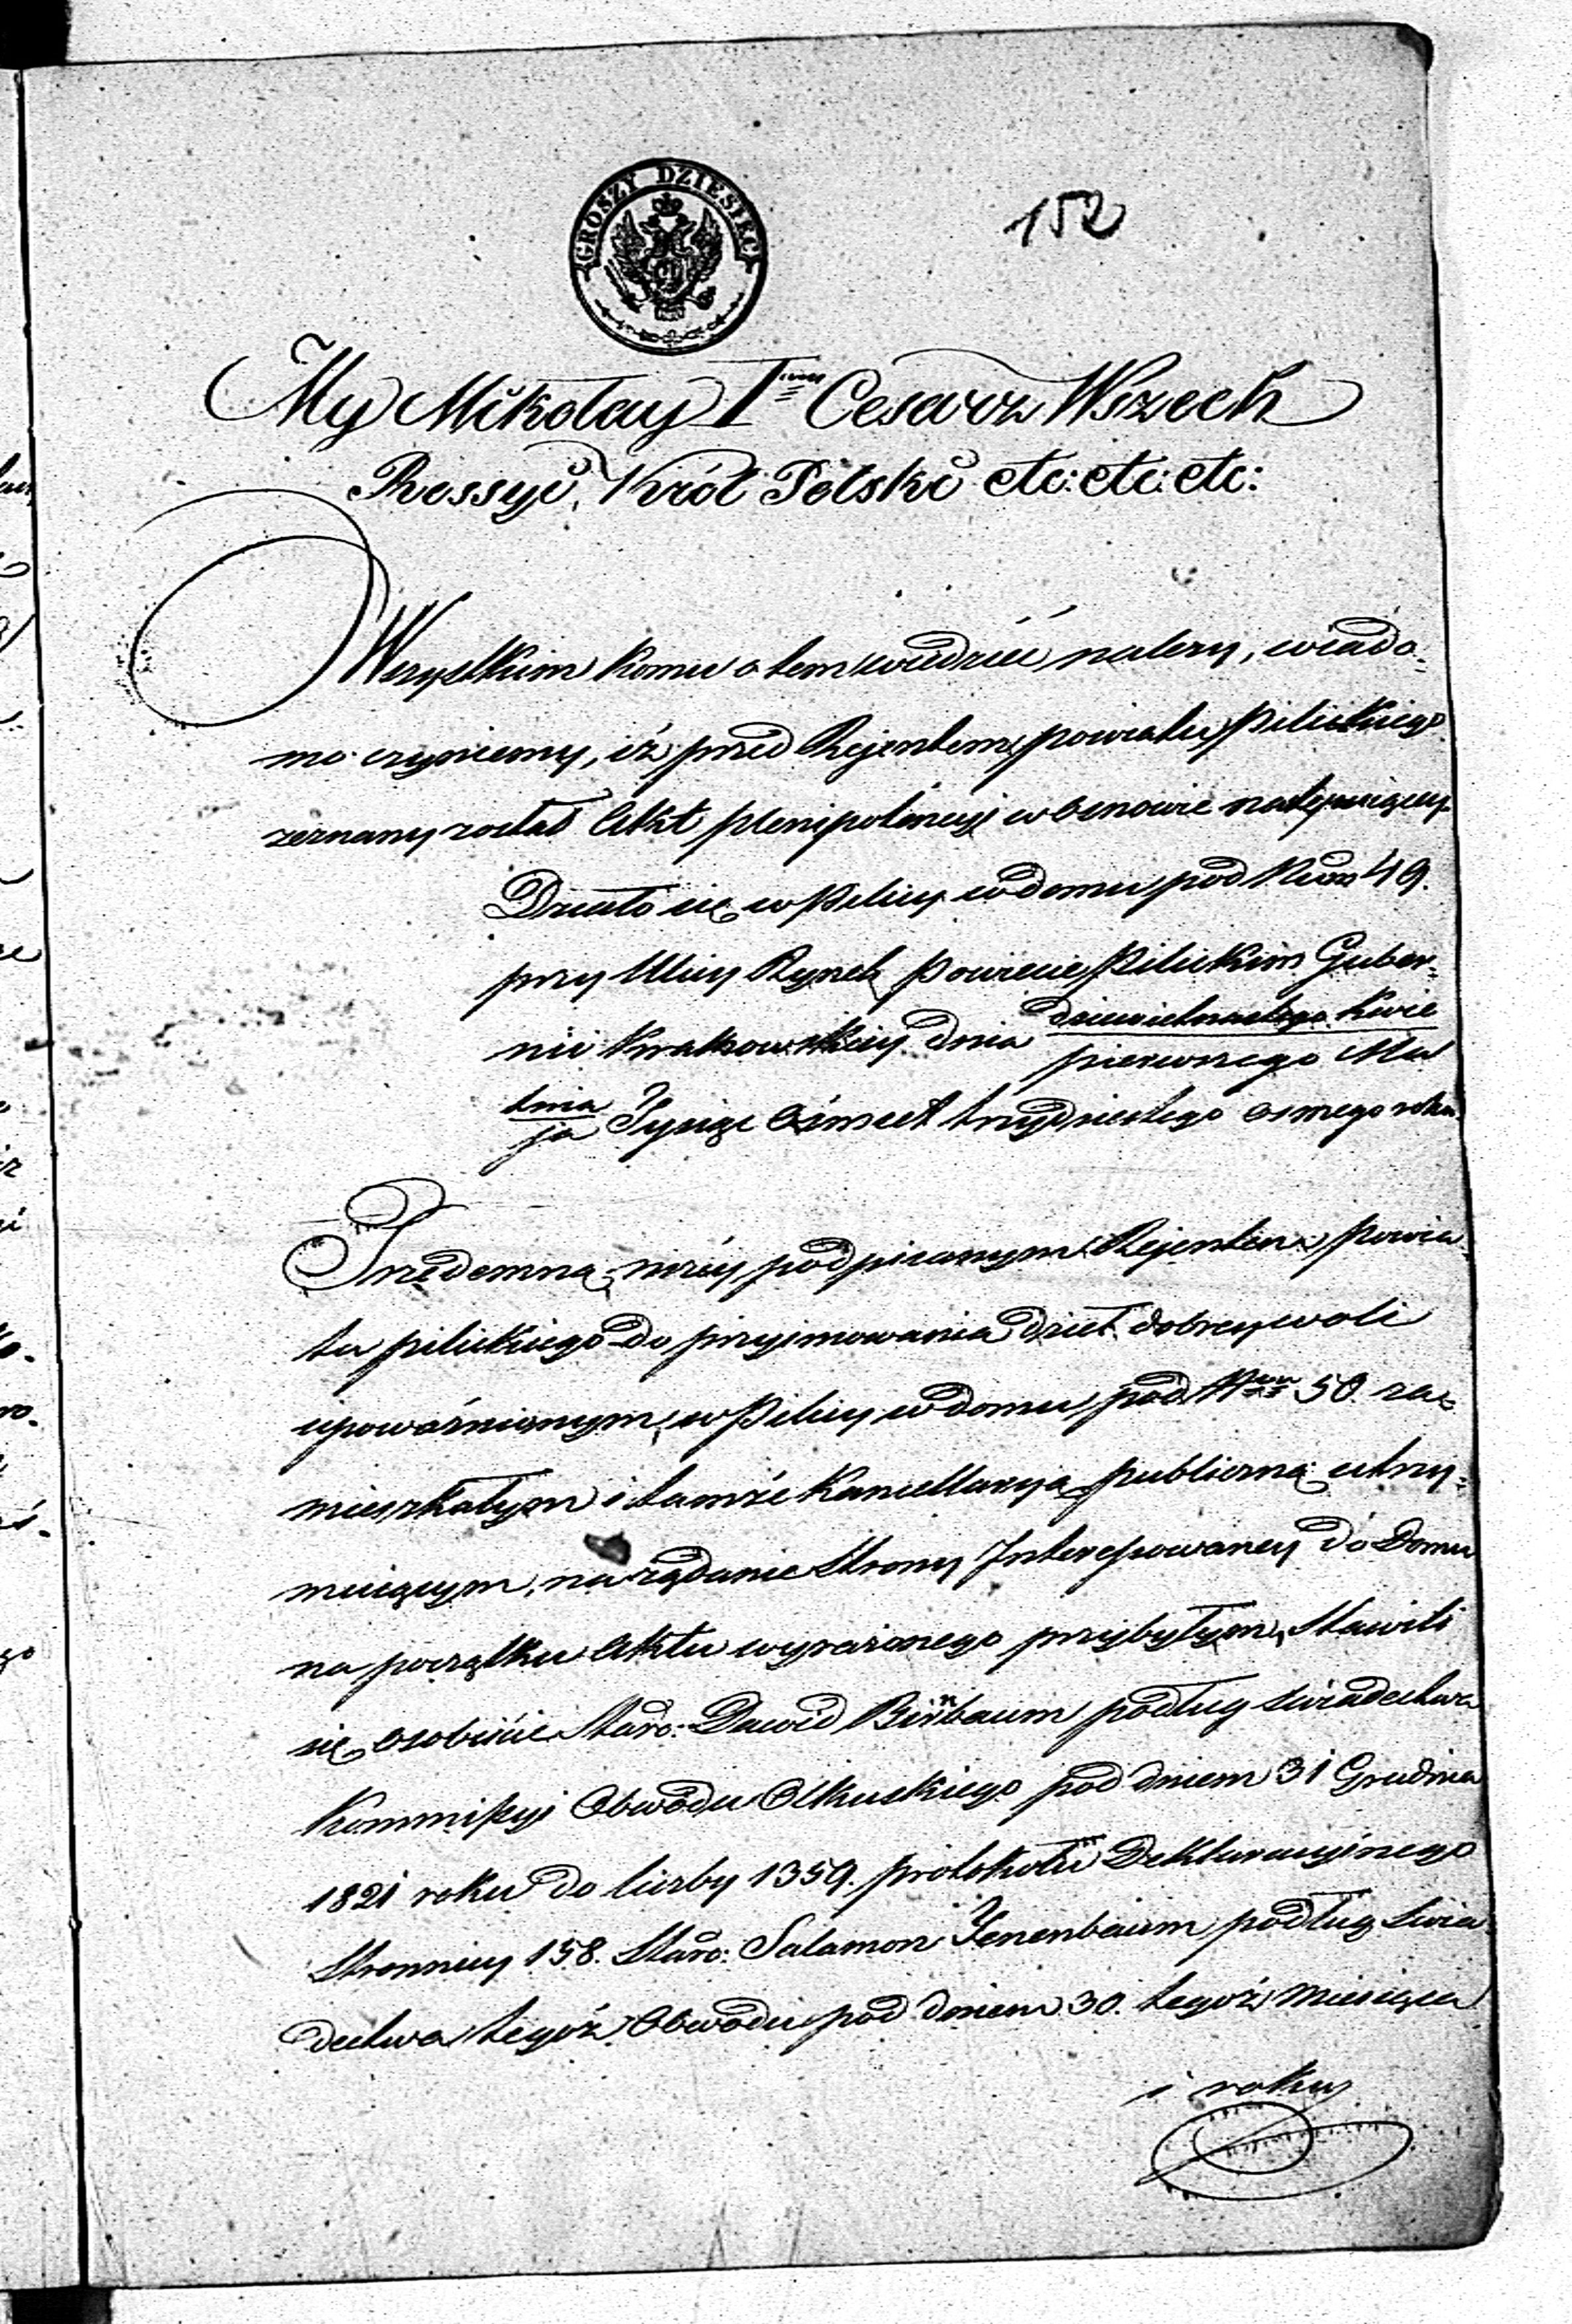 GROSZY DZIESIĘĆ
152
My Mikołay I Cesarz Wszech
Rossyi, Król Polski etc: etc: etc:
Wszystkim komu o tem wiedzieć należy, wiado-
mo czyniemy, iż przed Rejentem powiatu Pilickiego
zeznany został Akt plenipotencyi w osnowie następuiący.
Działo się w Pilicy w domu pod Nrem 49.
przy Ulicy Rynek Powiecie Pilickim Guber-
nii Krakowskiey dnia dziewietnastego Kwie
pierwszego Ma
tnia
ja Tysiąc Ośmset trzydziestego osmego roku
Przedemną niżey podpisanym Rejentem powia
tu pilickiego do przyjmowania dzieł dobrey woli
upoważnionym, w Pilicy w domu pod Nrem 50. za-
mieszkałym i tamże Kancellaryą publiczną utrzy-
muiącym, na żądanie Strony Interessowaney do Domu
na początku Aktu wyrażonego przybyłym, Stawili
się osobiście Staro: Dawid Birnbaum podług świadectwa
Kommissyi Obwodu Olkuskiego pod dniem 31 Grudnia
1821 roku do liczby 1359. protokołu Deklaracyinego
Stronnicy 158. Staro: Salamon Tenenbaum podług świa
dectwa tegóż Obwodu pod dniem 30. tegoż Miesiąca
i roku